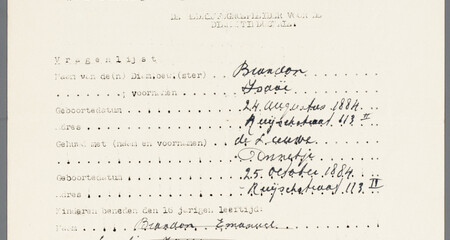 Vragenlijst
Naam van de(n) Diambew.(ster) . . . Brandon
. . . . . . . ; voornamen . . . Isaäc
Geboortedatum . . . . . . 24 Augustus 1884
Adres . . . . . . Ruijschstraat 113 II
Gehuwd met (naam en voornamen) . . de Leeuwe
. . . . . . . . . . . . Annetje
Geboortedatum . . . . . . 25 October 1884
Adres . . . . . . Ruijschstraat 113 II
Kinderen beneden den 16 jarigen leeftijd:
Naam . . . Brandon, Emanuel